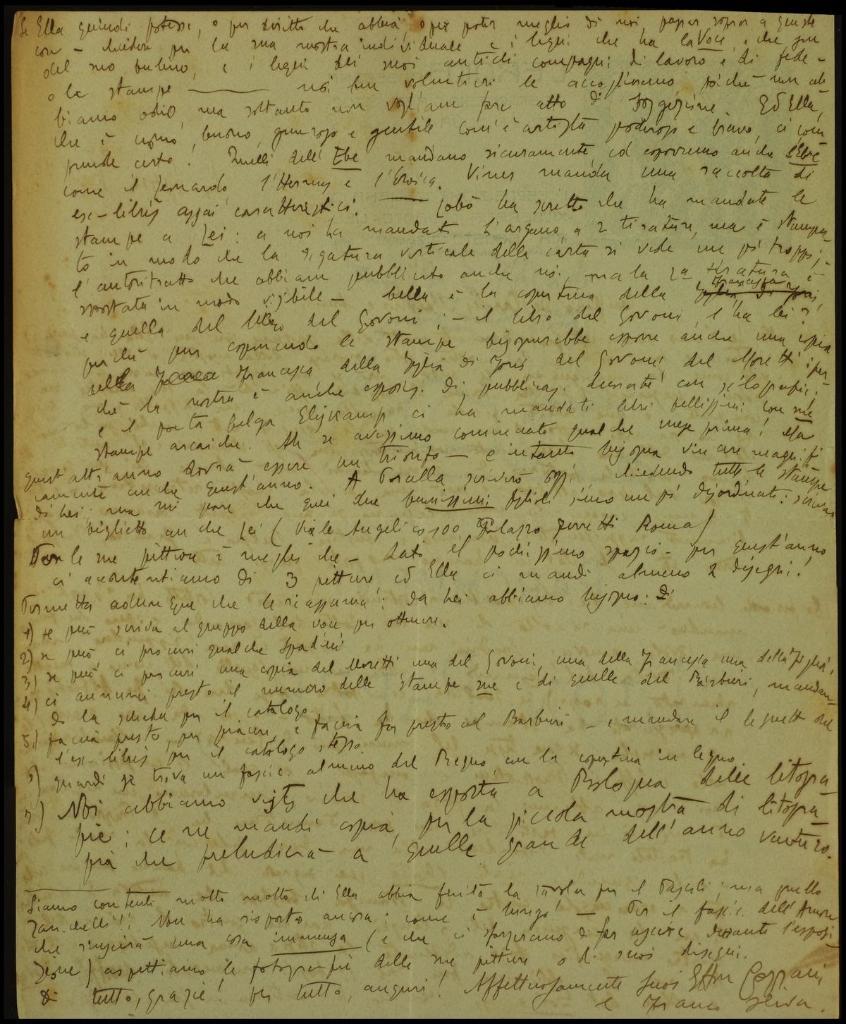 Se Ella quindi potesse, o per diritto che abbia o per poter meglio di noi passar sopra a queste
con – chiedere per la sua mostra individuale e i legni che ha la Voce, che son
del suo bulino, e i legni dei suoi antichi compagni di lavoro e di fede –
o le stampe noi ben volentieri le accogliremo poiché non ab
biamo odio, ma soltanto non vogliam fare atto di soggezione. Ed Ella,
che è uomo buono, generoso e gentile com'è artista poderoso e bravo, ci com
prende certo. Quelli dell'Ebe mandano sicuramente, ed esporremo anche l'Ebe
come il Fernando l'Hermes e l'Eroica. Vines manda una raccolta di
ex-libris assai caratteristici. Lobo ha scritto che ha mandate le
stampe a Lei: a noi ha mandato L'argano, a 2 tirature, ma è stampa
to in modo che la rigatura verticale della carta si vede un po' troppo;
l'autoritratto che abbiam pubblicato anche noi, ma la 2a tiratura è
spostata in modo visibile – bella è la copertina della Francesca
e quella del libro del Govoni; – il libro del Govoni, l'ha lei?
perché pur esponendo le stampe bisognerebbe esporre anche una copia
della Francesca della Figlia di Jorio del Govoni del Moretti: per
ché la mostra è anche esposiz. di pubblicaz. decorate con xilografie;
e il poeta belga Elskamp ci ha mandati libri bellissimi con sue
stampe arcaiche. Ah se avessimo cominciato qualche mese prima! Ma
quest'altr'anno dovrà essere un trionfo – e intanto bisogna vincere magnifi
camente anche quest'anno. A scriverò oggi chiedendo tutte le stampe
di Lei: ma mi pare che quei due buonissimi figlioli sieno un po' disordinati: scriva
un biglietto anche Lei (Viale Angelico 100 Palazzo Roma)
Per le sue pitture è meglio che – dato il pochissimo spazio – per quest'anno
ci accontentiamo di 3 pitture ed Ella ci mandi almeno 2 disegni.
Permetta adunque che le riassuma: da Lei abbiamo bisogno:
1) se può scriva al gruppo della Voce per ottenere.
2) se può ci procuri qualche Spadini
3) se può ci procuri una copia del Moretti una del Govoni, una della Francesca una della Figlia,
4) ci annunci presto il numero delle stampe sue e di quelle del Barbieri, mandan
do la scheda per il catalogo
5) faccia presto, per piacere, e faccia far presto al Barbieri – e mandare il legnetto del
l'ex libris per il catalogo stesso.
6) guardi se trova un fascic. almeno del Regno con la copertina in legno.
7) Noi abbiamo visto che ha esposto a Bologna delle litogra
fie: ce ne mandi copia, per la piccola mostra di litogra
fia che preluderà a quella grande dell'anno venturo.
Siamo contenti molto molto che Ella abbia finito la tavola per il Pascoli; ma quello
Zanelli! Non ha risposto ancora: come è lungo! – Per il fascic. dell'Amore
che riuscirà una cosa immensa (e che ci sforziamo di far uscire durante l'esposi
zione) aspettiamo le fotografie delle sue pitture o di suoi disegni.
Di tutto, grazie! per tutto, auguri! Affettuosamente suoi Ettore Cozzani
e Franco Oliva.